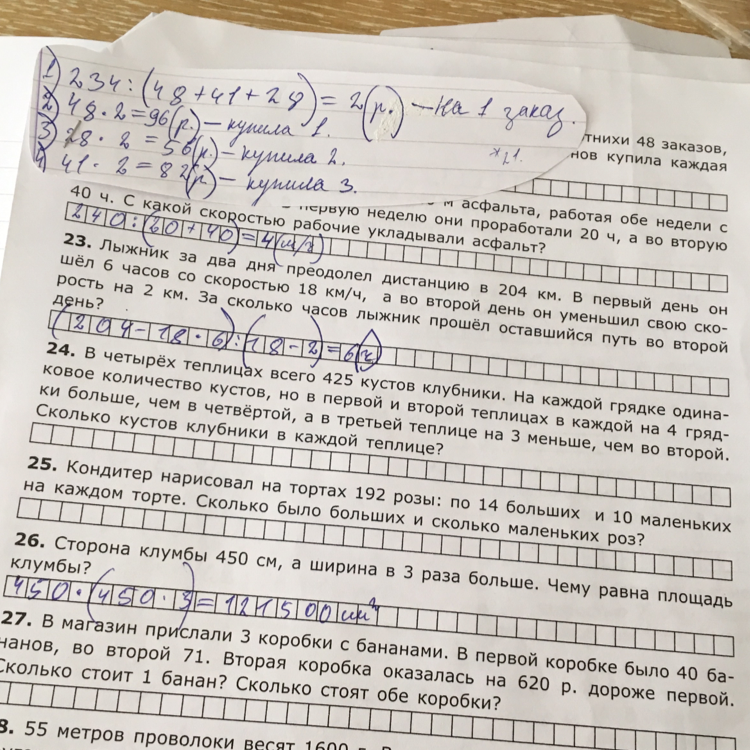 1) 234 : (48 + 41 + 28) = 2 (р.) — на 1 заказ.
2) 48 · 2 = 96 (р.) — купила 1.
3) 28 · 2 = 56 (р.) — купила 2.
4) 41 · 2 = 82 (р.) — купила 3.
48 заказов,
купила каждая
асфальта, работая обе недели с
первую неделю они проработали 20 ч, а во вторую
40 ч. С какой скоростью рабочие укладывали асфальт?
240 : (20 + 40) = 4 (м/ч)
23. Лыжник за два дня преодолел дистанцию в 204 км. В первый день он
шёл 6 часов со скоростью 18 км/ч, а во второй день он уменьшил свою ско-
рость на 2 км. За сколько часов лыжник прошёл оставшийся путь во второй
день?
(204 - 18 · 6) : (18 - 2) = 6 (ч)
24. В четырёх теплицах всего 425 кустов клубники. На каждой грядке одина-
ковое количество кустов, но в первой и второй теплицах в каждой на 4 гряд-
ки больше, чем в четвёртой, а в третьей теплице на 3 меньше, чем во второй.
Сколько кустов клубники в каждой теплице?
25. Кондитер нарисовал на тортах 192 розы: по 14 больших и 10 маленьких
на каждом торте. Сколько было больших и сколько маленьких роз?
26. Сторона клумбы 450 см, а ширина в 3 раза больше. Чему равна площадь
клумбы?
450 · (450 · 3) = 121500 см²
27. В магазин прислали 3 коробки с бананами. В первой коробке было 40 ба-
нанов, во второй 71. Вторая коробка оказалась на 620 р. дороже первой.
Сколько стоит 1 банан? Сколько стоят обе коробки?
8. 55 метров проволоки весят 1600 г.